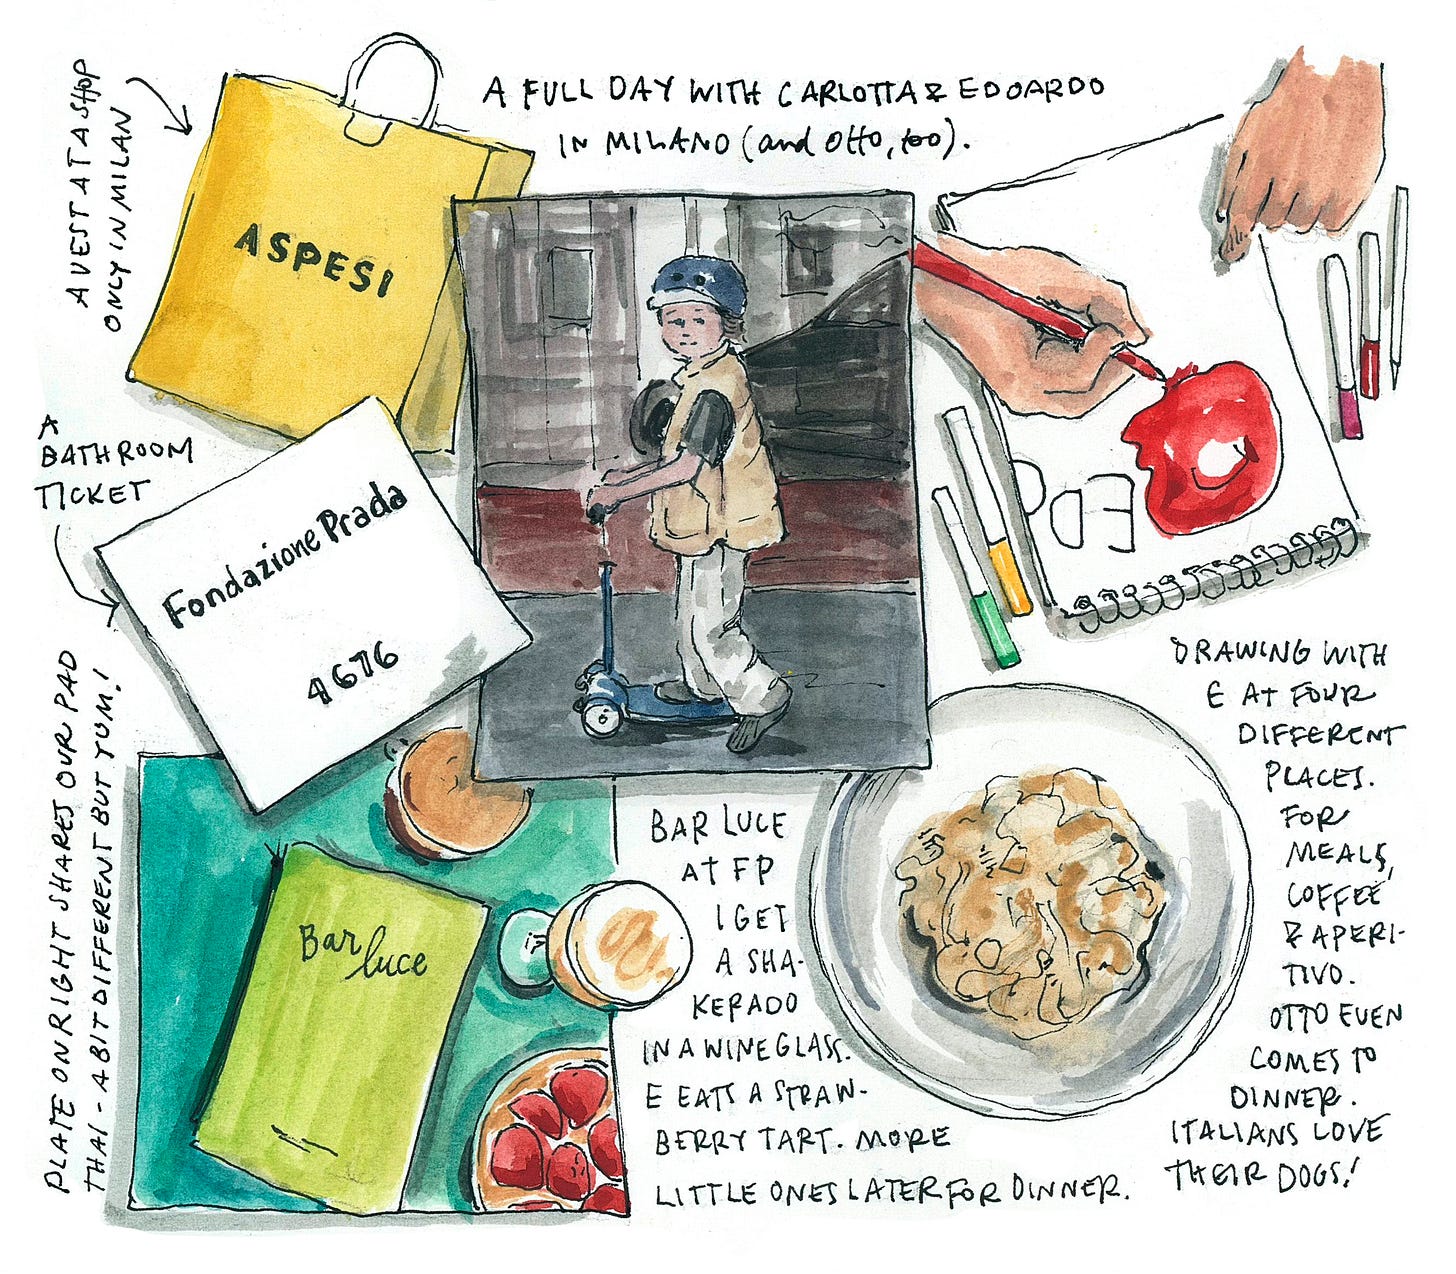 A FULL DAY WITH CARLOTTA & EDOARDO
IN MILANO (and Otto, too).
A VEST AT A SHOP
ONLY IN MILAN
ASPESI
A
BATHROOM
TICKET
Fondazione Prada
4676
PLATE ON RIGHT SHARES OUR PAD
THAI - A BIT DIFFERENT BUT YUM!
Bar
luce
BAR LUCE
AT FP
I GET
A SHA-
KERADO
IN A WINE GLASS.
E EATS A STRAW-
BERRY TART. MORE
LITTLE ONES LATER FOR DINNER.
EDO
DRAWING WITH
E AT FOUR
DIFFERENT
PLACES.
FOR
MEALS,
COFFEE
& APERI-
TIVO.
OTTO EVEN
COMES TO
DINNER.
ITALIANS LOVE
THEIR DOGS!